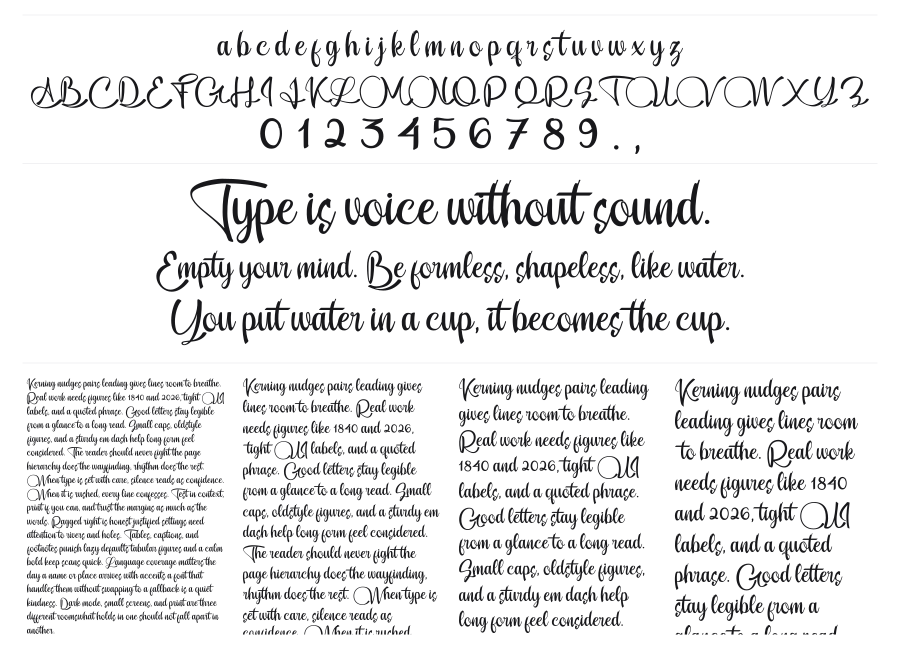 a b c d e f g h i j k l m n o p q r s t u v w x y z
A B C D E F G H I J K L M N O P Q R S T U V W X Y Z
0 1 2 3 4 5 6 7 8 9 . ,
Type is voice without sound.
Empty your mind. Be formless, shapeless, like water.
You put water in a cup, it becomes the cup.
Kerning nudges pairs leading gives lines room to breathe.
Real work needs figures like 1840 and 2026, tight UI
labels, and a quoted phrase. Good letters stay legible
from a glance to a long read. Small caps, oldstyle
figures, and a sturdy em dash help long form feel
considered. The reader should never fight the page
hierarchy does the wayfinding, rhythm does the rest.
When type is set with care, silence reads as confidence.
When it is rushed, every line confesses. Test in context,
print if you can, and trust the margins as much as the
words. Ragged right is honest justified settings need
attention to rivers and holes. Tables, captions, and
footnotes punish lazy defaults tabular figures and a calm
bold keep scans quick. Language coverage matters the
day a name or place arrives with accents a font that
handles them without swapping to a fallback is a quiet
kindness. Dark mode, small screens, and print are three
different rooms what holds in one should not fall apart in
another.
Kerning nudges pairs leading gives
lines room to breathe. Real work
needs figures like 1840 and 2026,
tight UI labels, and a quoted
phrase. Good letters stay legible
from a glance to a long read. Small
caps, oldstyle figures, and a sturdy em
dash help long form feel considered.
The reader should never fight the
page hierarchy does the wayfinding,
rhythm does the rest. When type is
set with care, silence reads as
confidence. When it is rushed
Kerning nudges pairs leading
gives lines room to breathe.
Real work needs figures like
1840 and 2026, tight UI
labels, and a quoted phrase.
Good letters stay legible
from a glance to a long read.
Small caps, oldstyle figures,
and a sturdy em dash help
long form feel considered.
Kerning nudges pairs
leading gives lines room
to breathe. Real work
needs figures like 1840
and 2026, tight UI
labels, and a quoted
phrase. Good letters
stay legible from a
glance to a long read